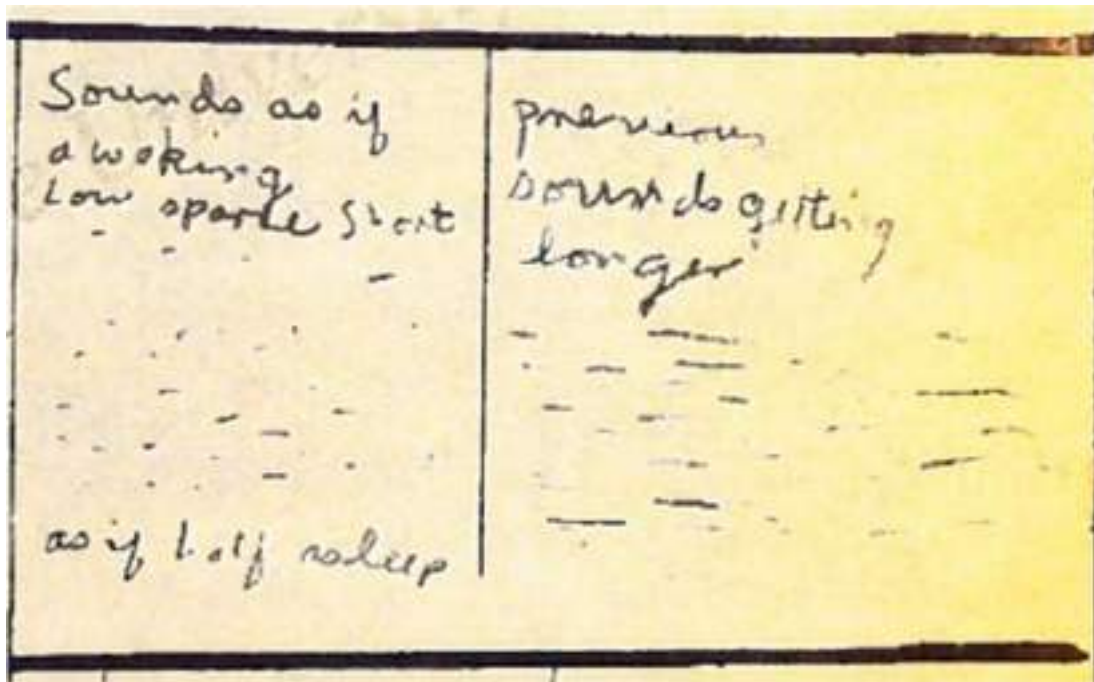 Sounds as if
awaking
Low sparse short
as if half asleep
previous
sounds getting
longer